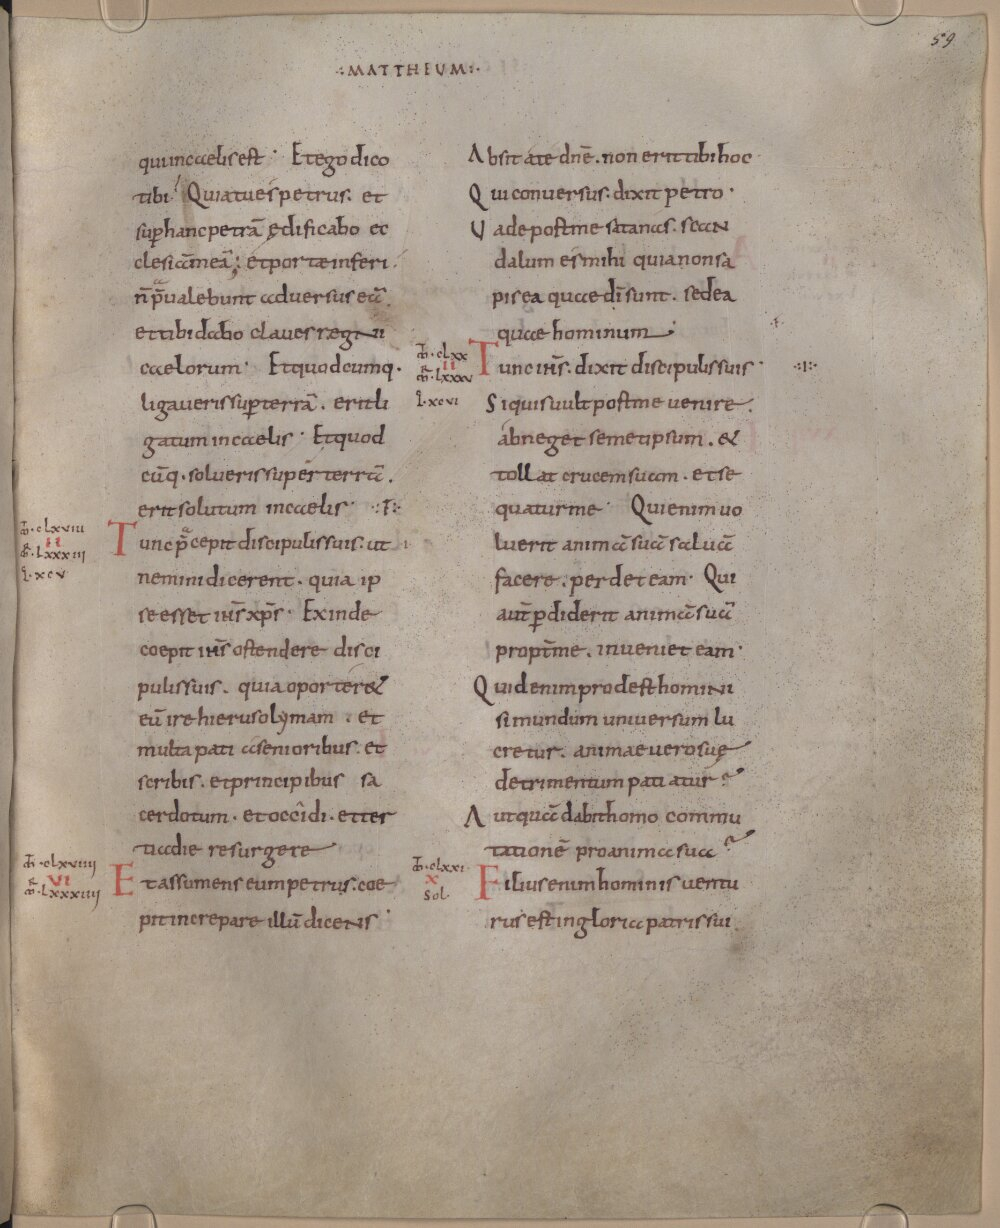 59
·:MATTHEUM:·
qui in caelis est · Et ego dico
tibi · Quia tu es petrus · et
sup hanc petrā ędificabo ec
clesiā meā ; et portae inferi ·
n̄ p̄ualebunt aduersus eā ·
et tibi dabo claues regni
caelorum · Et quodcumq·
ligaueris sup terrā · erit li
gatum in caelis · Et quod
cūq· solueris super terrā ·
erit solutum in caelis ·
M̄· clxviii
II
M̄R̄· lxxxiii
L· xcv
Tunc p̄cepit discipulis suis · ut
nemini dicerent · quia ip
se esset ih̄s xp̄s · Exinde
coepit ih̄s ostendere disci
pulis suis · quia oporter&
eū ire hierusolymam · et
multa pati a senioribus · et
scribis · et principibus sa
cerdotum · et occidi · et ter
tia die resurgere
M̄· clxviiii
VI
M̄R̄· lxxxiiii
Et assumens eum petrus · coe
pit increpare illū dicens ·
Absit a te dn̄e · non erit tibi hoc
Qui conuersus · dixit petro ·
Uade post me satanas · scan
dalum es mihi quia non sa
pis ea quae dī sunt · sed ea
quae hominum
M̄· clxx
II
M̄R̄· lxxxv
L· xcvi
Tunc ih̄s · dixit discipulis suis ·
Si quis uult post me uenire ·
abneget semetipsum · &
tollat crucem suam · et se
quatur me · Qui enim uo
luerit animā suā saluā
facere · perdet eam · Qui
aut̄ pdiderit animā suā
propt̄ me · inueniet eam ·
Quid enim prodest homini
si mundum uniuersum lu
cretur · animae uero suę
detrimentum patiatur ?
Aut quā dabit homo commu
tationē pro anima sua ?
M̄· clxxi·
X
sol·
Filius enim hominis uentu
rus est in gloria patris sui ·